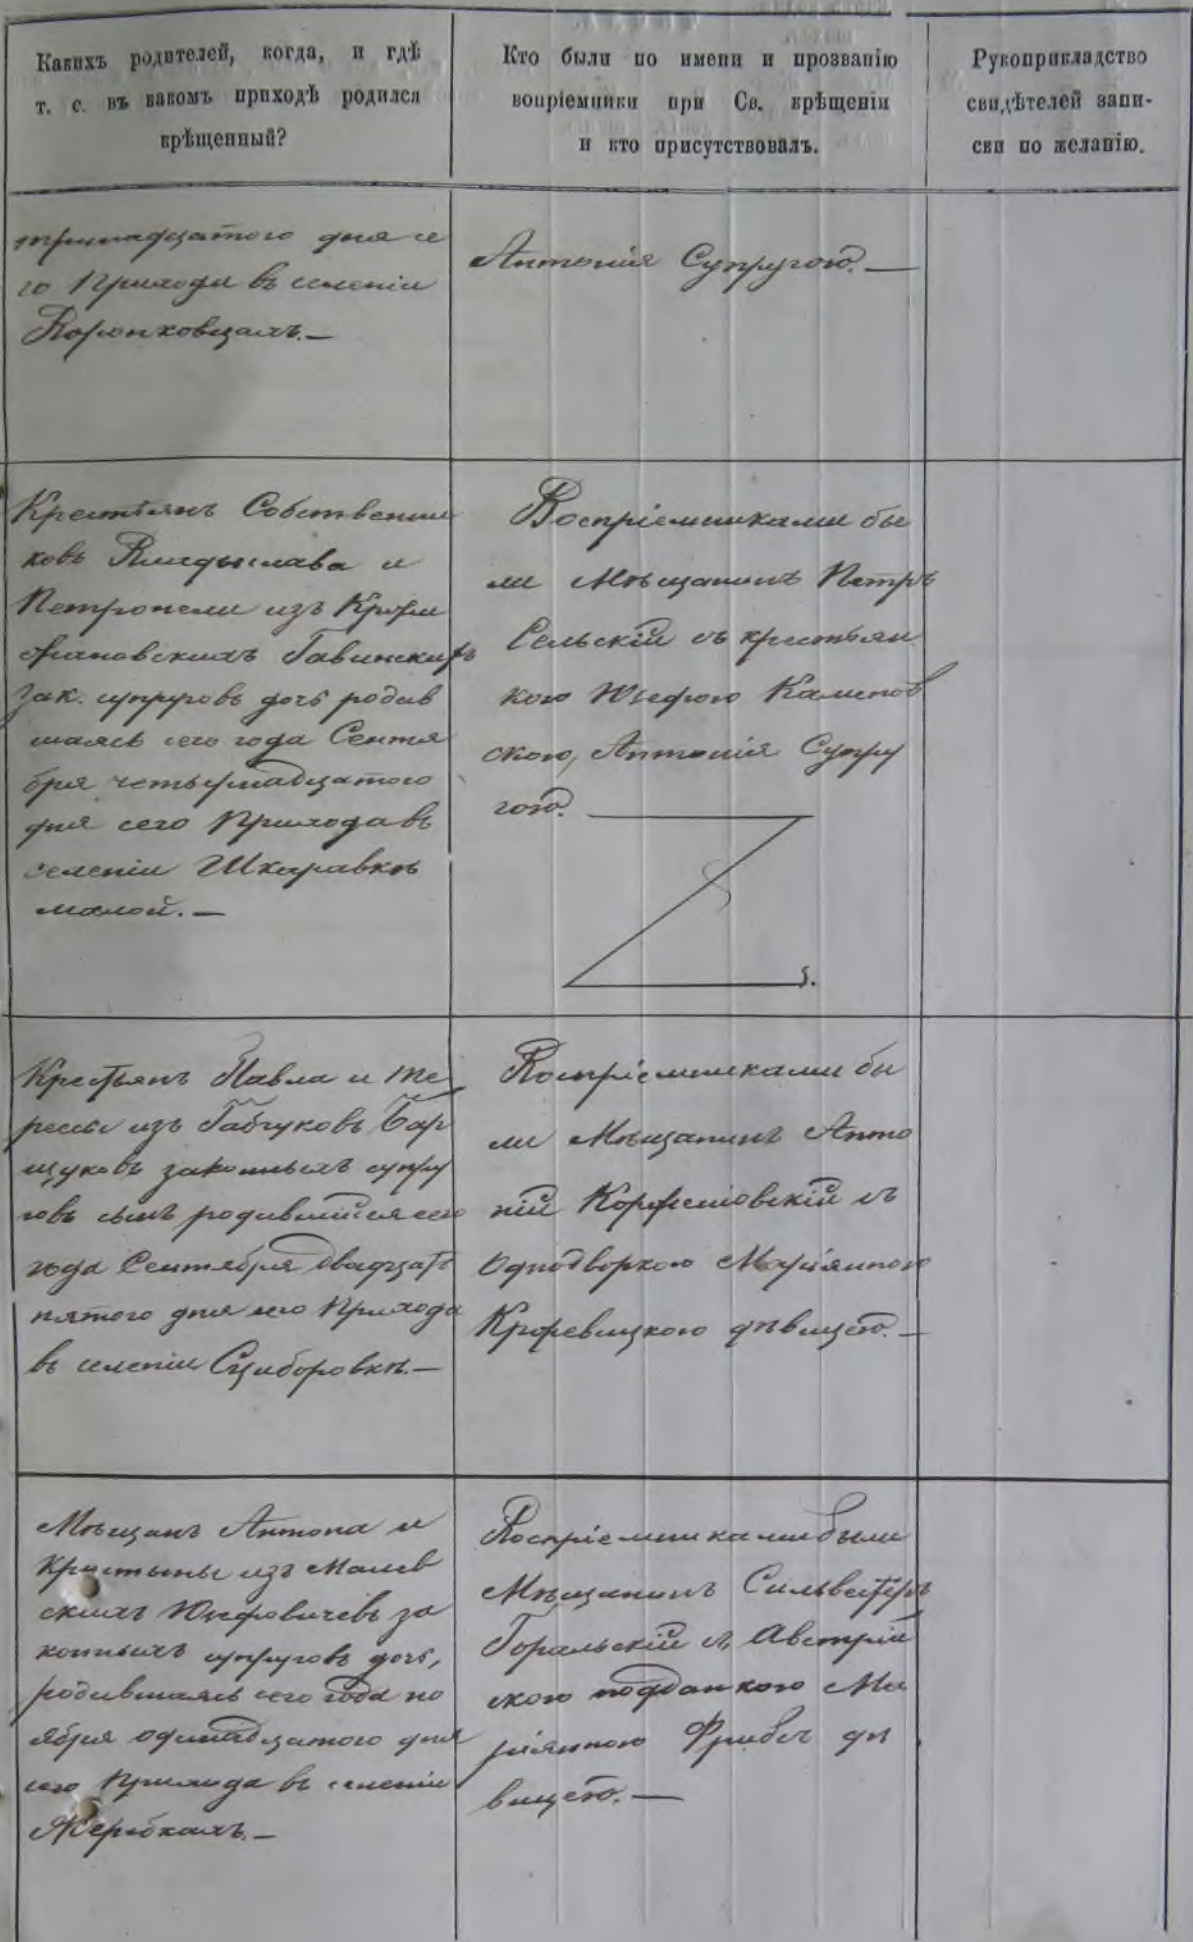 Какихъ родителей, когда, и гдѣ
т. е. въ какомъ приходѣ родился
крѣщенный?
Кто были по имени и прозванію
вопріемники при Св. крѣщеніи
и кто присутствовалъ.
Рукоприкладство
свидѣтелей запи-
ски по желанію.
тринадцатого дня се
го Прихода въ селеніи
Воронковцахъ.—
Антонія Супругою.—
Крестьянъ Собственни
ковъ Владыслава и
Петронели изъ
Гавинскихъ
зак. супруговъ дочь родив
шаясь сего года Сентя
бря четырнадцатого
дня сего Прихода въ
селеніи Шкаравкѣ
малой.—
Воспріемниками бы
ли Мѣщанинъ Петръ
Сельскій съ крестьян
кою Юзефою Калинов
скою, Антонія Супру
гою.
Крестьянъ Павла и Те
ресы изъ Бабчуковъ Бар
щуковъ законныхъ супру
говъ сынъ родившійся сего
года Сентября двадцать
пятого дня сего Прихода
въ селеніи Сциборовкѣ.—
Воспріемниками бы
ли Мѣщанинъ Анто
ній съ
Однодворкою Маріянною
дѣвицею.—
Мѣщанъ Антона и
Крыстыны изъ Малев
скихъ Юзефовичевъ за
конныхъ супруговъ дочь,
родившаясь сего года но
ября одинадцатого дня
сего Прихода въ селеніи
Жеребкахъ.—
Воспріемниками были
Мѣщанинъ Сильвестръ
Горальскій съ Австрій
скою подданкою Ма
ріянною дѣ
вицею.—